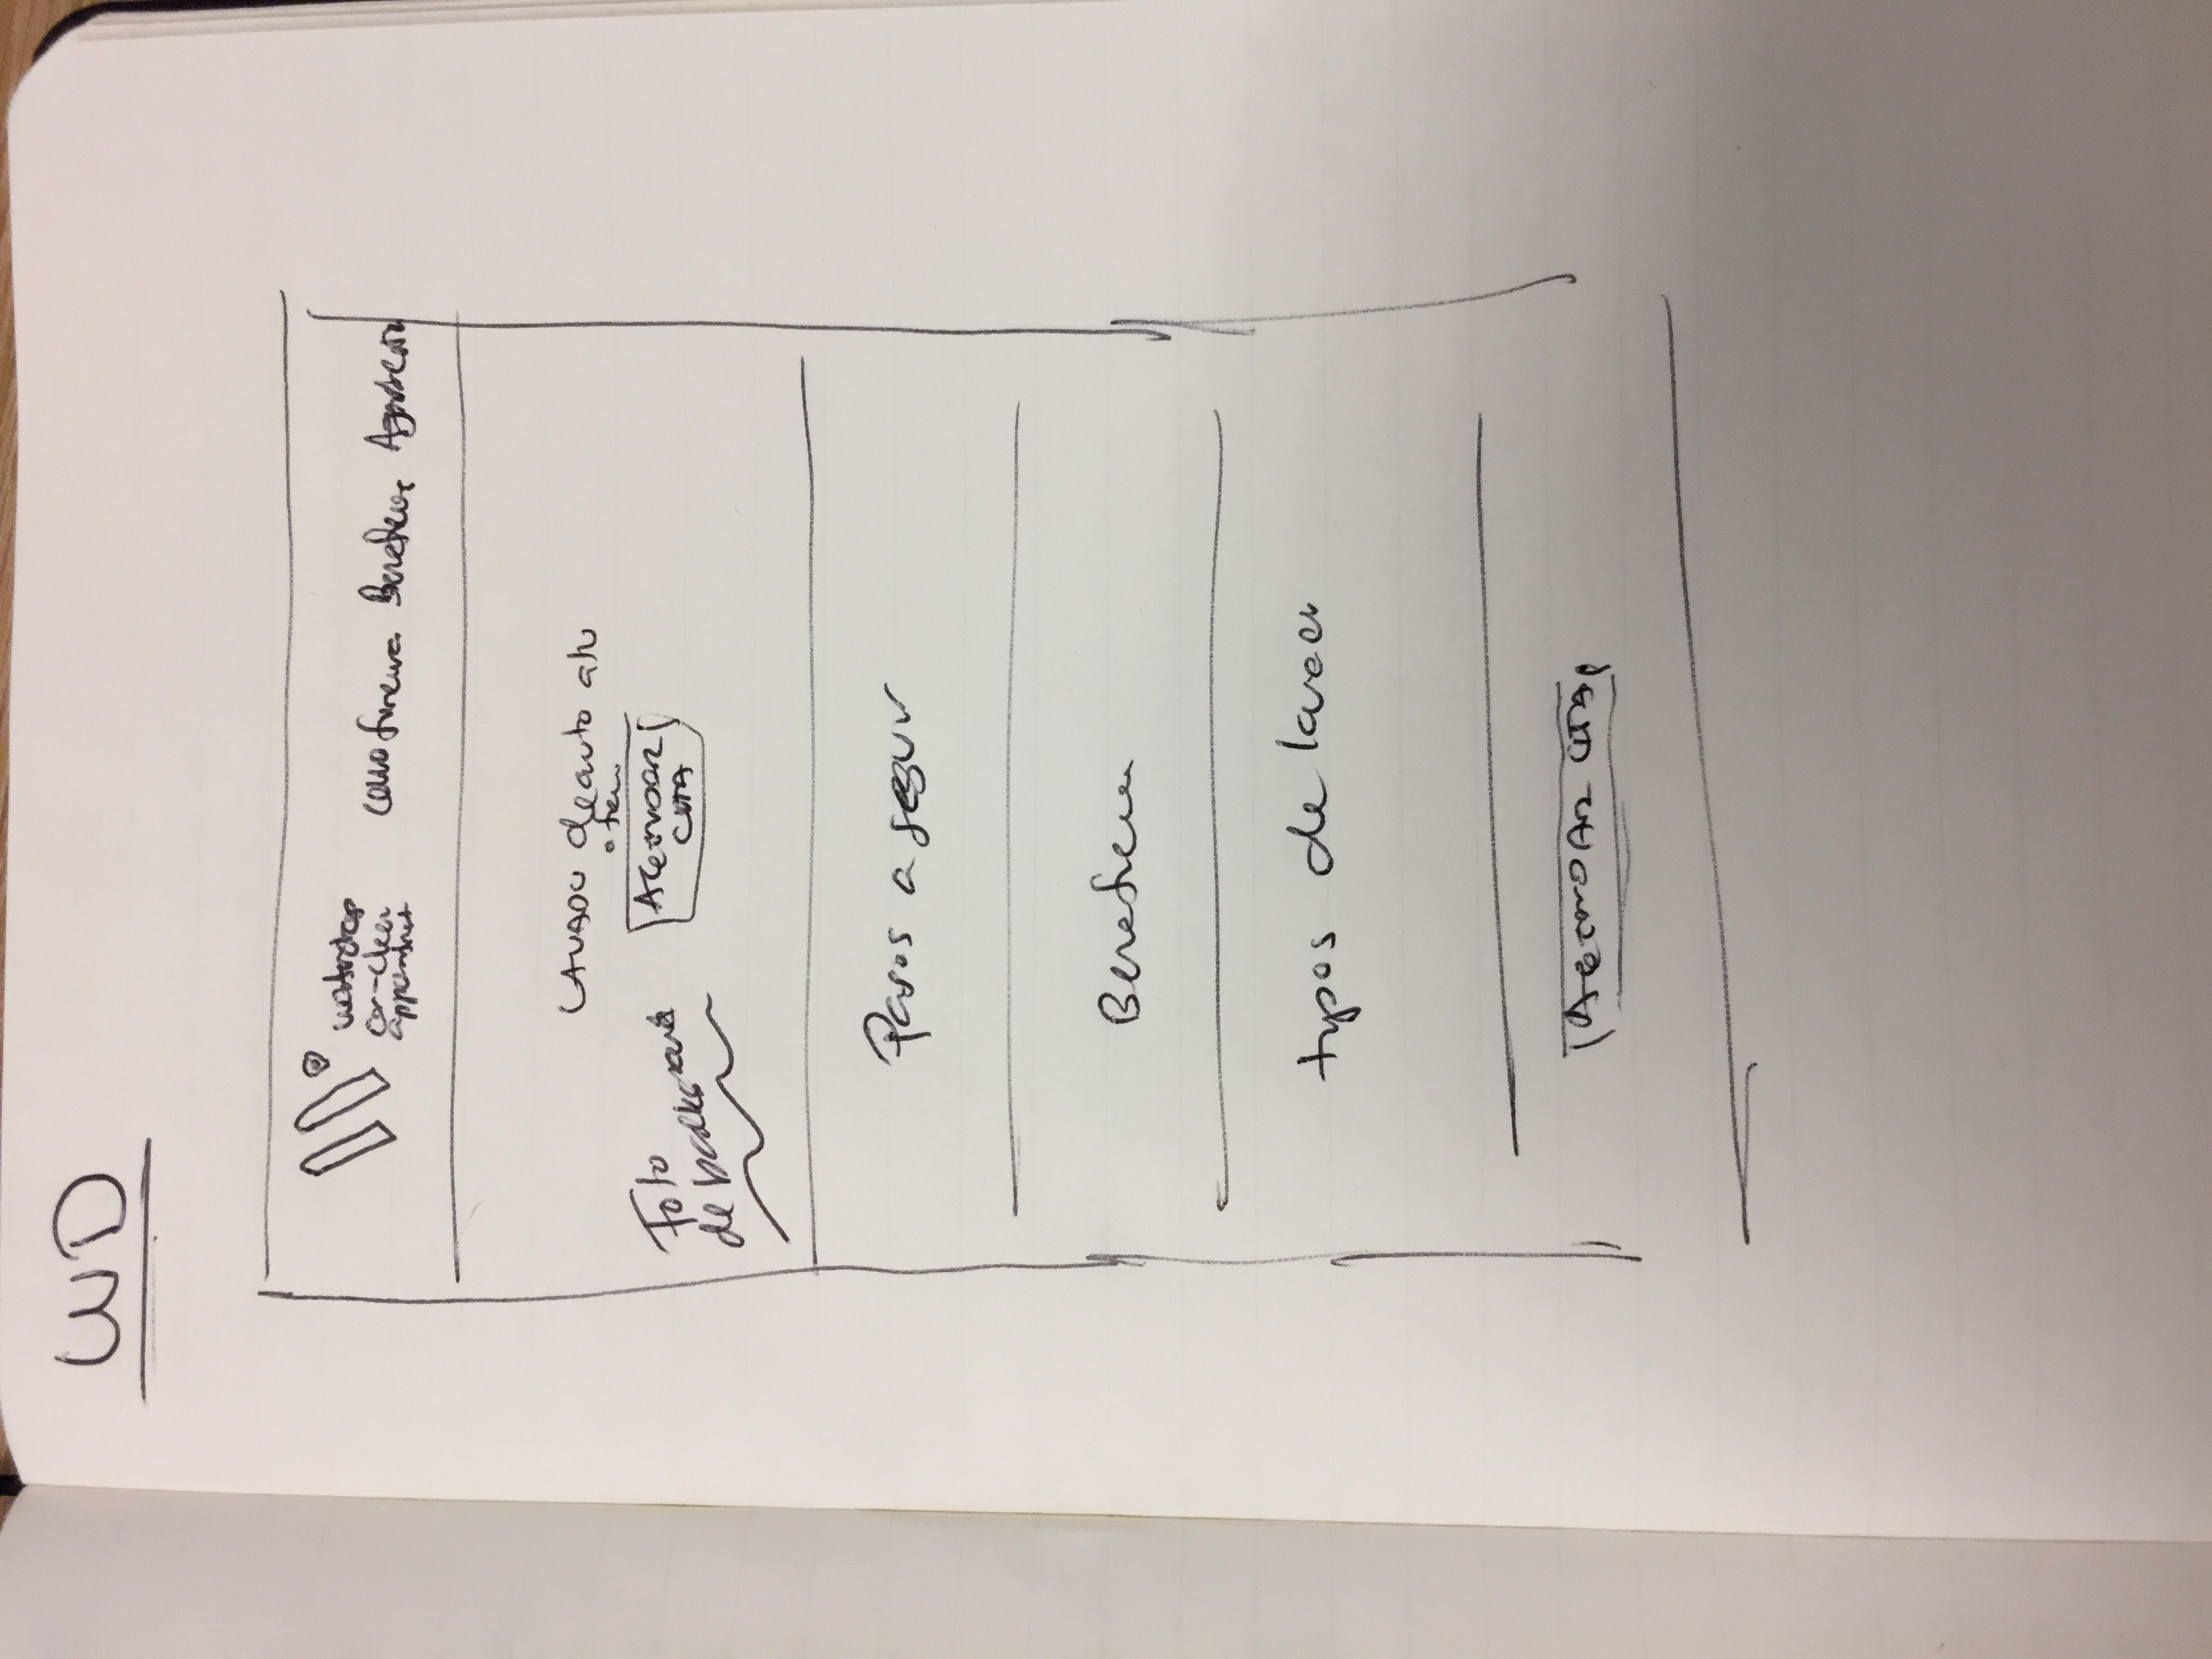 WD
waterdrop
car-clean
appointment
como funciona Beneficios Agendar cita
LAVADO de auto a tu
oficina
AGENDAR
CITA
Foto
de background
Pasos a seguir
Beneficios
typos de lavados
AGENDAR CITA